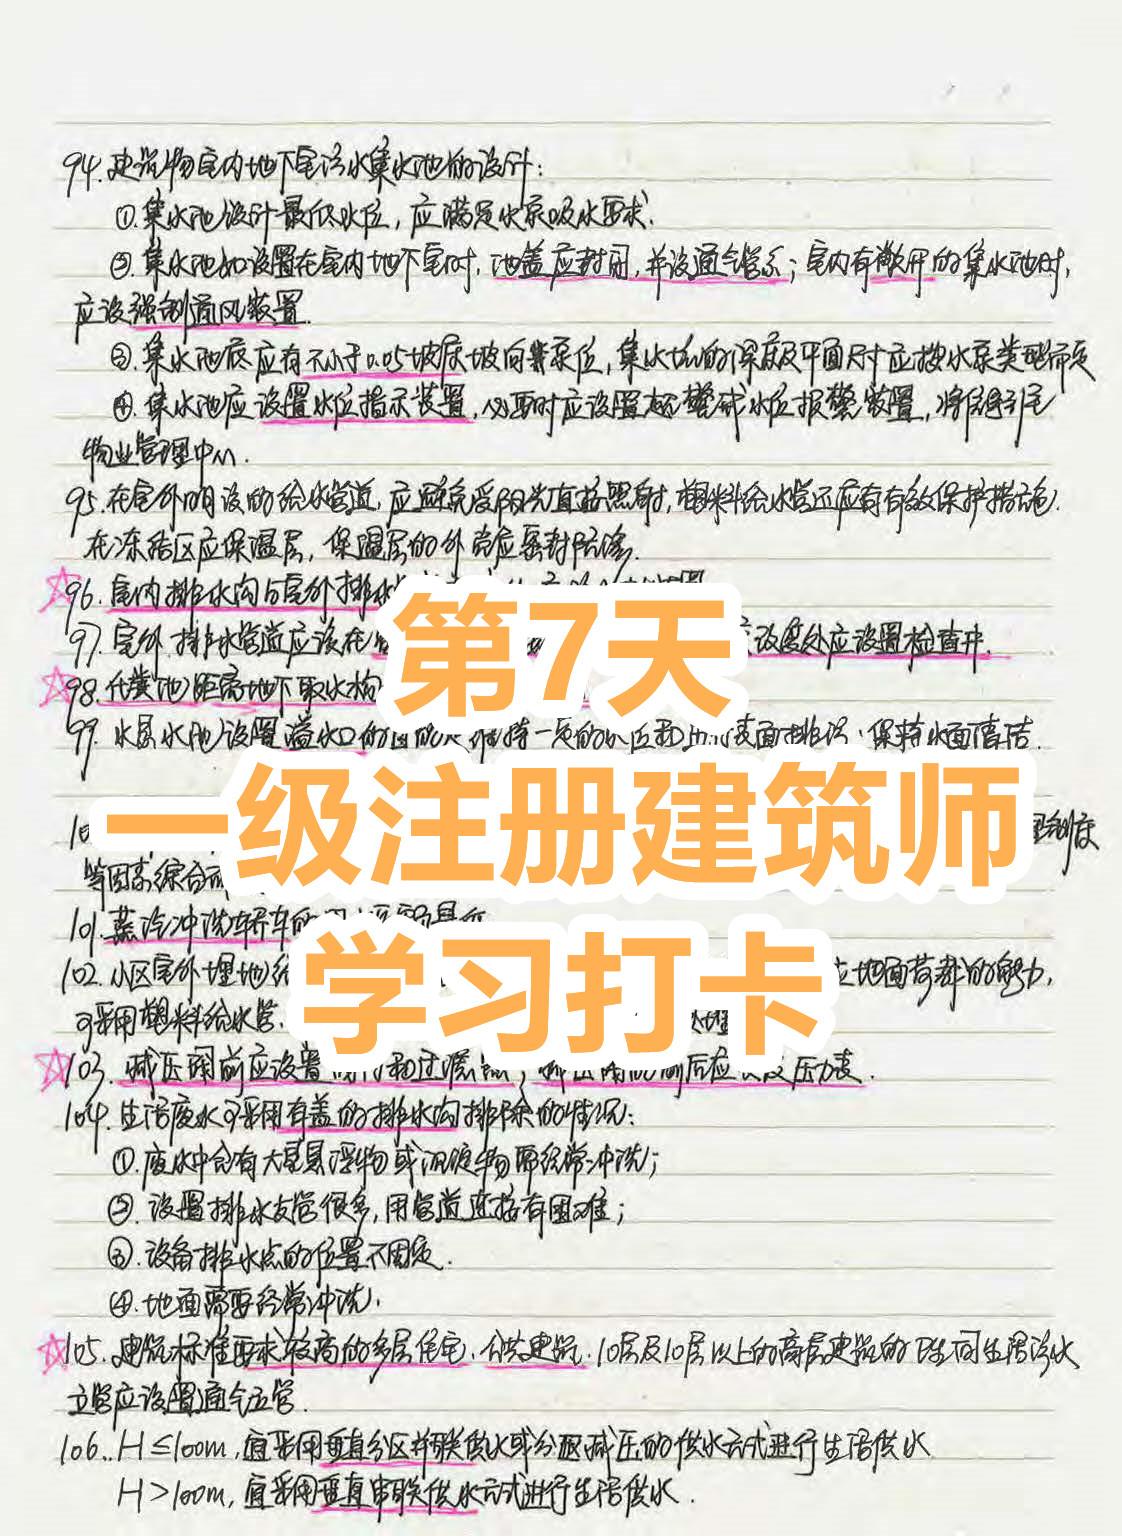 94.建筑物室内地下室污水集水池的设计:
①.集水池设计最低水位，应满足水泵吸水要求.
②.集水池如设置在室内地下室时，池盖应封闭，并设通气管系；室内有敞开的集水池时，
应设强制通风装置.
③.集水池底应有不小于0.05坡度坡向泵位，集水坑的深度及平面尺寸应按水泵类型确定
④.集水池应设置水位指示装置，必要时应设置超警戒水位报警装置，将信号引至
物业管理中心.
95.在室外明设的给水管道，应避免受阳光直接照射，塑料给水管还应有有效保护措施.
在冻结区应保温层，保温层的外壳应密封防渗.
96.室内排水沟与室外排水
第7天
97.室外排水管道应该在 设度处应设置检查井.
98.化粪池距离地下取水构
99.水景水池设置溢水口的目的是维持一定的水位和 表面排污、保持水面清洁.
一级注册建筑师
制度
等因素综合
101.蒸汽冲洗轿车的
学习打卡
102.小区室外埋地给 地面荷载的能力，
可采用塑料给水管.
103.减压阀前应设置 和过滤 ；减压阀的前后应 压力表.
104.生活废水可采用有盖的排水沟排除的情况:
①.废水中含有大量悬浮物或沉淀物需经常冲洗；
②.设置排水支管很多，用管道连接有困难；
③.设备排水点的位置不固定.
④.地面需要经常冲洗.
105.建筑标准要求较高的多层住宅、公共建筑、10层及10层以上的高层建筑的卫生间生活污水
立管应设置通气立管.
106.. H≤100m，宜采用垂直分区并联供水或分区减压的供水方式进行生活供水
H>100m，宜采用垂直串联供水方式进行生活供水.